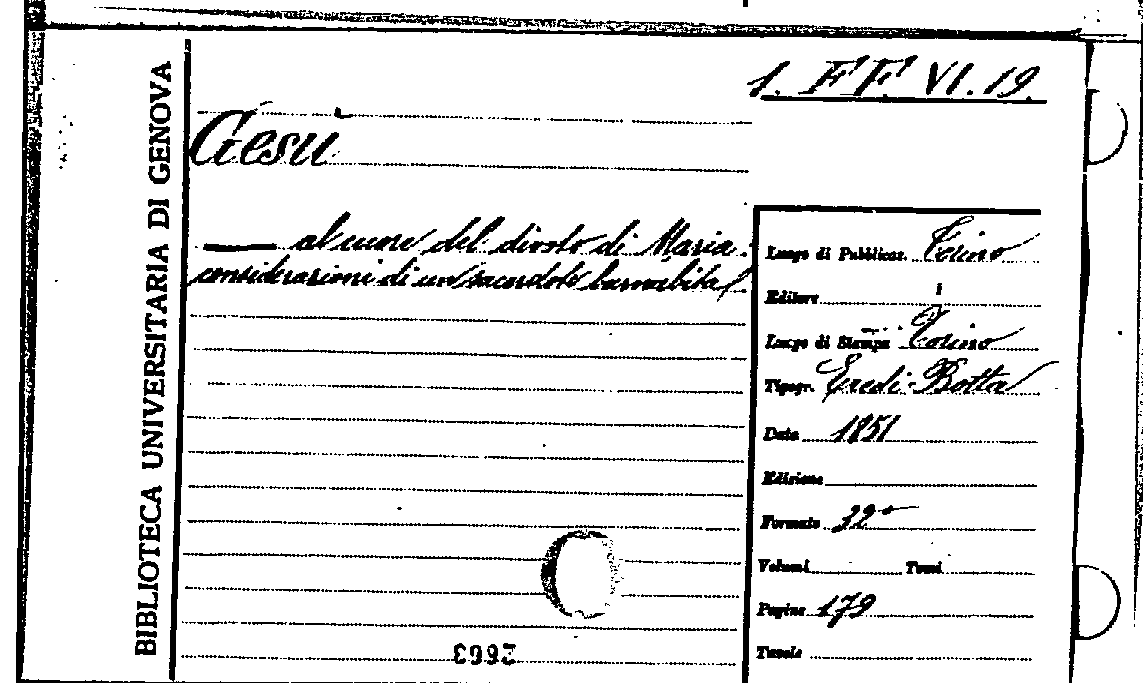 BIBLIOTECA UNIVERSITARIA DI GENOVA
1. FF. VI. 19.
Gesù
—— al cuore del divoto di Maria:
considerazioni di un sacerdote barnabita.
Luogo di Pubblicaz. Torino
Editore
Luogo di Stampa Torino
Tipogr. Eredi Botta
Data 1851
Edizione
Formato 32°
Volumi Tomi
Pagine 179
Tavole